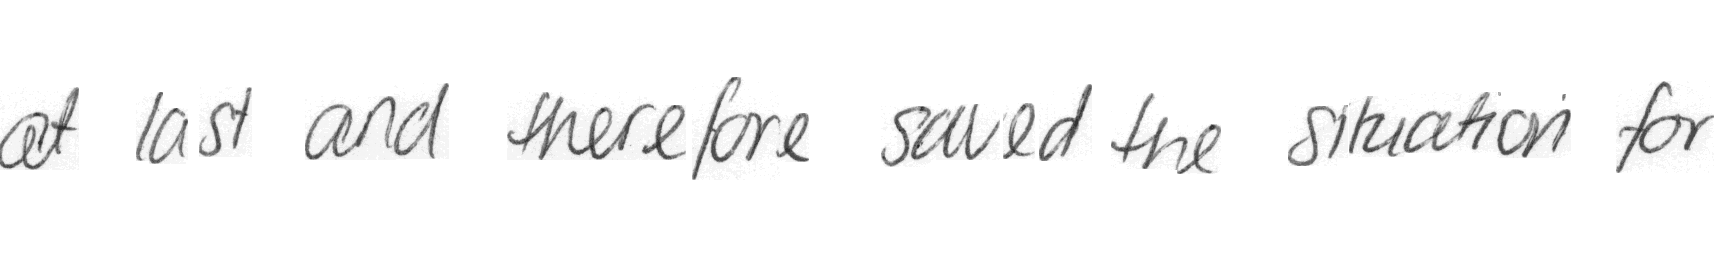 at last and therefore saved the situation for